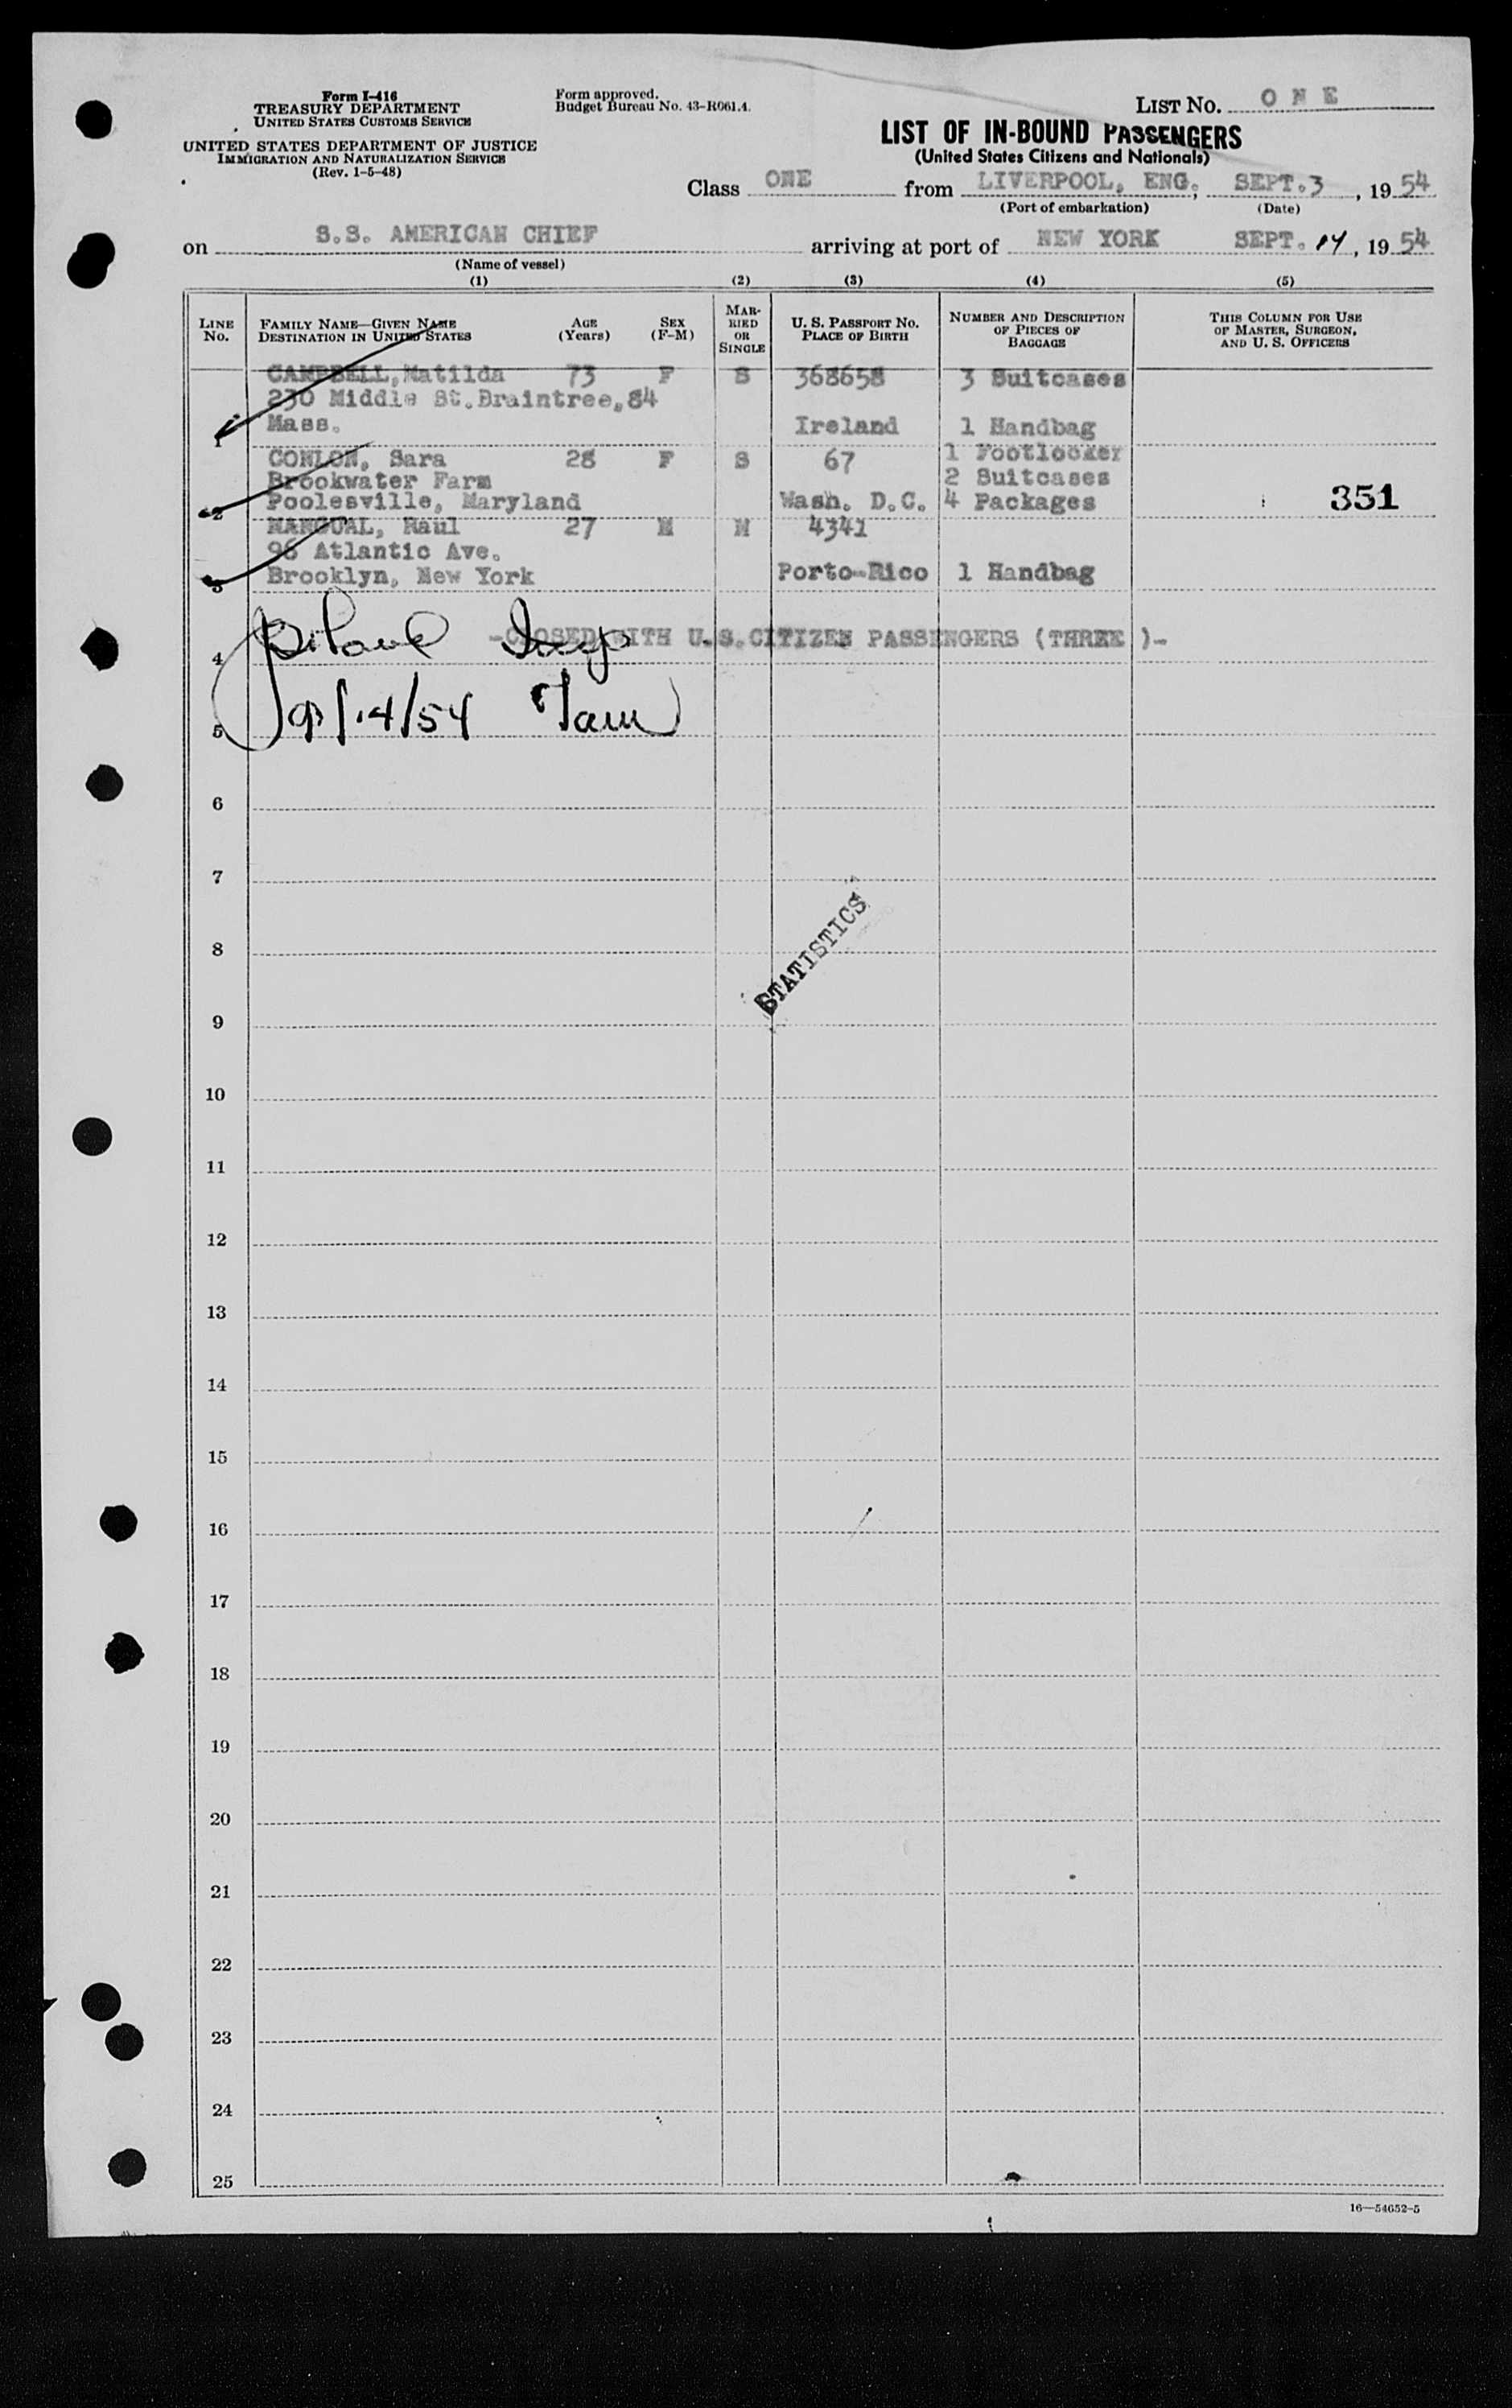 Form I-416
TREASURY DEPARTMENT
UNITED STATES CUSTOMS SERVICE
UNITED STATES DEPARTMENT OF JUSTICE
IMMIGRATION AND NATURALIZATION SERVICE
(Rev. 1-5-48)
Form approved.
Budget Bureau No. 43-R061.4.
LIST NO. ONE
LIST OF IN-BOUND PASSENGERS
(United States Citizens and Nationals)
Class ONE from LIVERPOOL, ENG., SEPT.3, 1954
(Port of embarkation) (Date)
on S.S. AMERICAN CHIEF arriving at port of NEW YORK SEPT. 14, 1954
(Name of vessel)
(1) (2) (3) (4) (5)
LINE NO. FAMILY NAME—GIVEN NAME DESTINATION IN UNITED STATES AGE (Years) SEX (F-M) MARRIED OR SINGLE U. S. PASSPORT NO. PLACE OF BIRTH NUMBER AND DESCRIPTION OF PIECES OF BAGGAGE THIS COLUMN FOR USE OF MASTER, SURGEON, AND U. S. OFFICERS
CAMPBELL, Matilda 73 F S 368658 3 Suitcases
230 Middle St. Braintree, 84
1 Mass. Ireland 1 Handbag
CONLON, Sara 28 F S 67 1 Footlocker
Brookwater Farm 2 Suitcases
2 Poolesville, Maryland Wash. D.C. 4 Packages 351
MANGUAL, Raul 27 M M 4341
96 Atlantic Ave.
3 Brooklyn, New York Porto-Rico 1 Handbag
4 -CLOSED WITH U.S.CITIZEN PASSENGERS (THREE )-
5 9/14/54
6
7
STATISTICS
8
9
10
11
12
13
14
15
16
17
18
19
20
21
22
23
24
25
16—54652-5